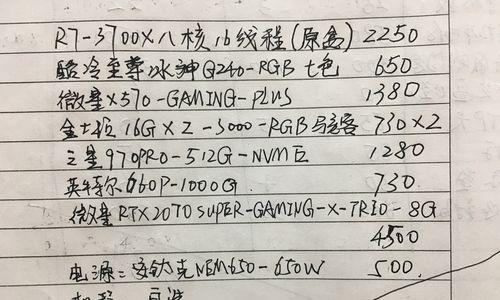 R7-3700X八核16线程(原盒) 2250
酷冷至尊冰神G240-RGB 七色 650
微星X570-GAMING-PLUS 1380
金士顿16G×2-3000-RGB 骇客 730×2
三星970PRO-512G-NVM 1280
英特尔660P-1000G 730
微星RTX2070 SUPER-GAMING-X-TRIO-8G
4500
电源:安钛克NEM650-650W 500